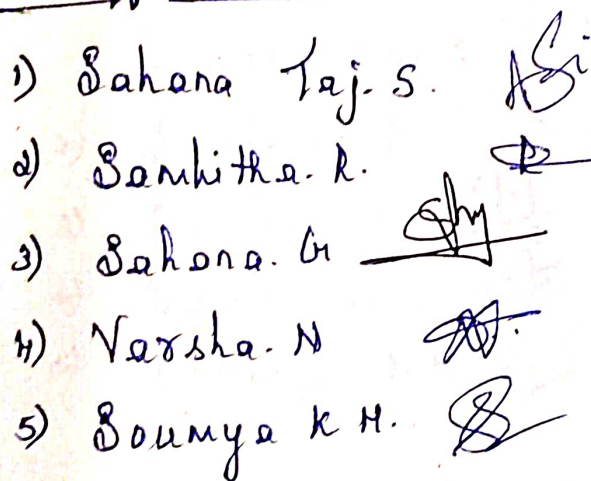 1) Sahana Taj. S.
2) Samhitha. R.
3) Sahana. G
4) Varsha. N
5) Soumya K H.